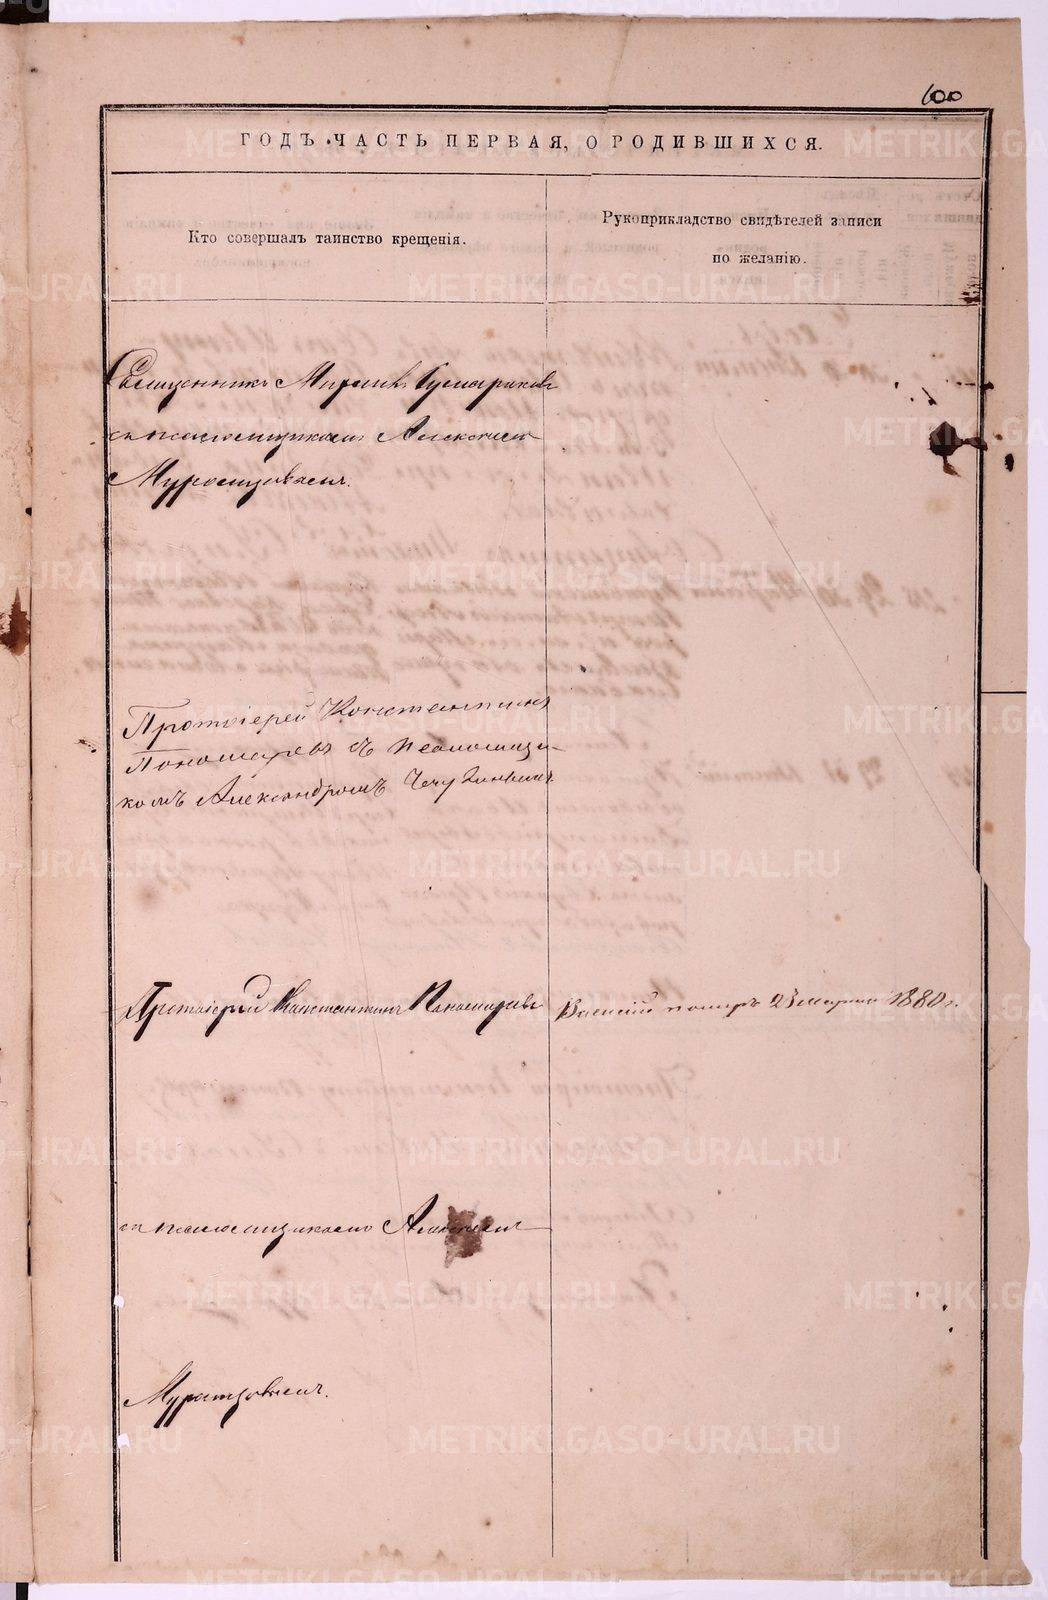 100
ГОДЪ ЧАСТЬ ПЕРВАЯ, О РОДИВШИХСЯ.
Кто совершалъ таинство крещенія.
Рукоприкладство свидѣтелей записи
по желанію.
Священникъ
съ псаломщикомъ Алексѣемъ
Муромцовымъ.
Протоіерей Константинъ
Пономаревъ съ псаломщи-
комъ Александромъ
Протоіерей Константинъ Пономаревъ
померъ 23 марта 1880 г.
съ псаломщикомъ Алексѣемъ
Муромцовымъ.
METRIKI.GASO-URAL.RU